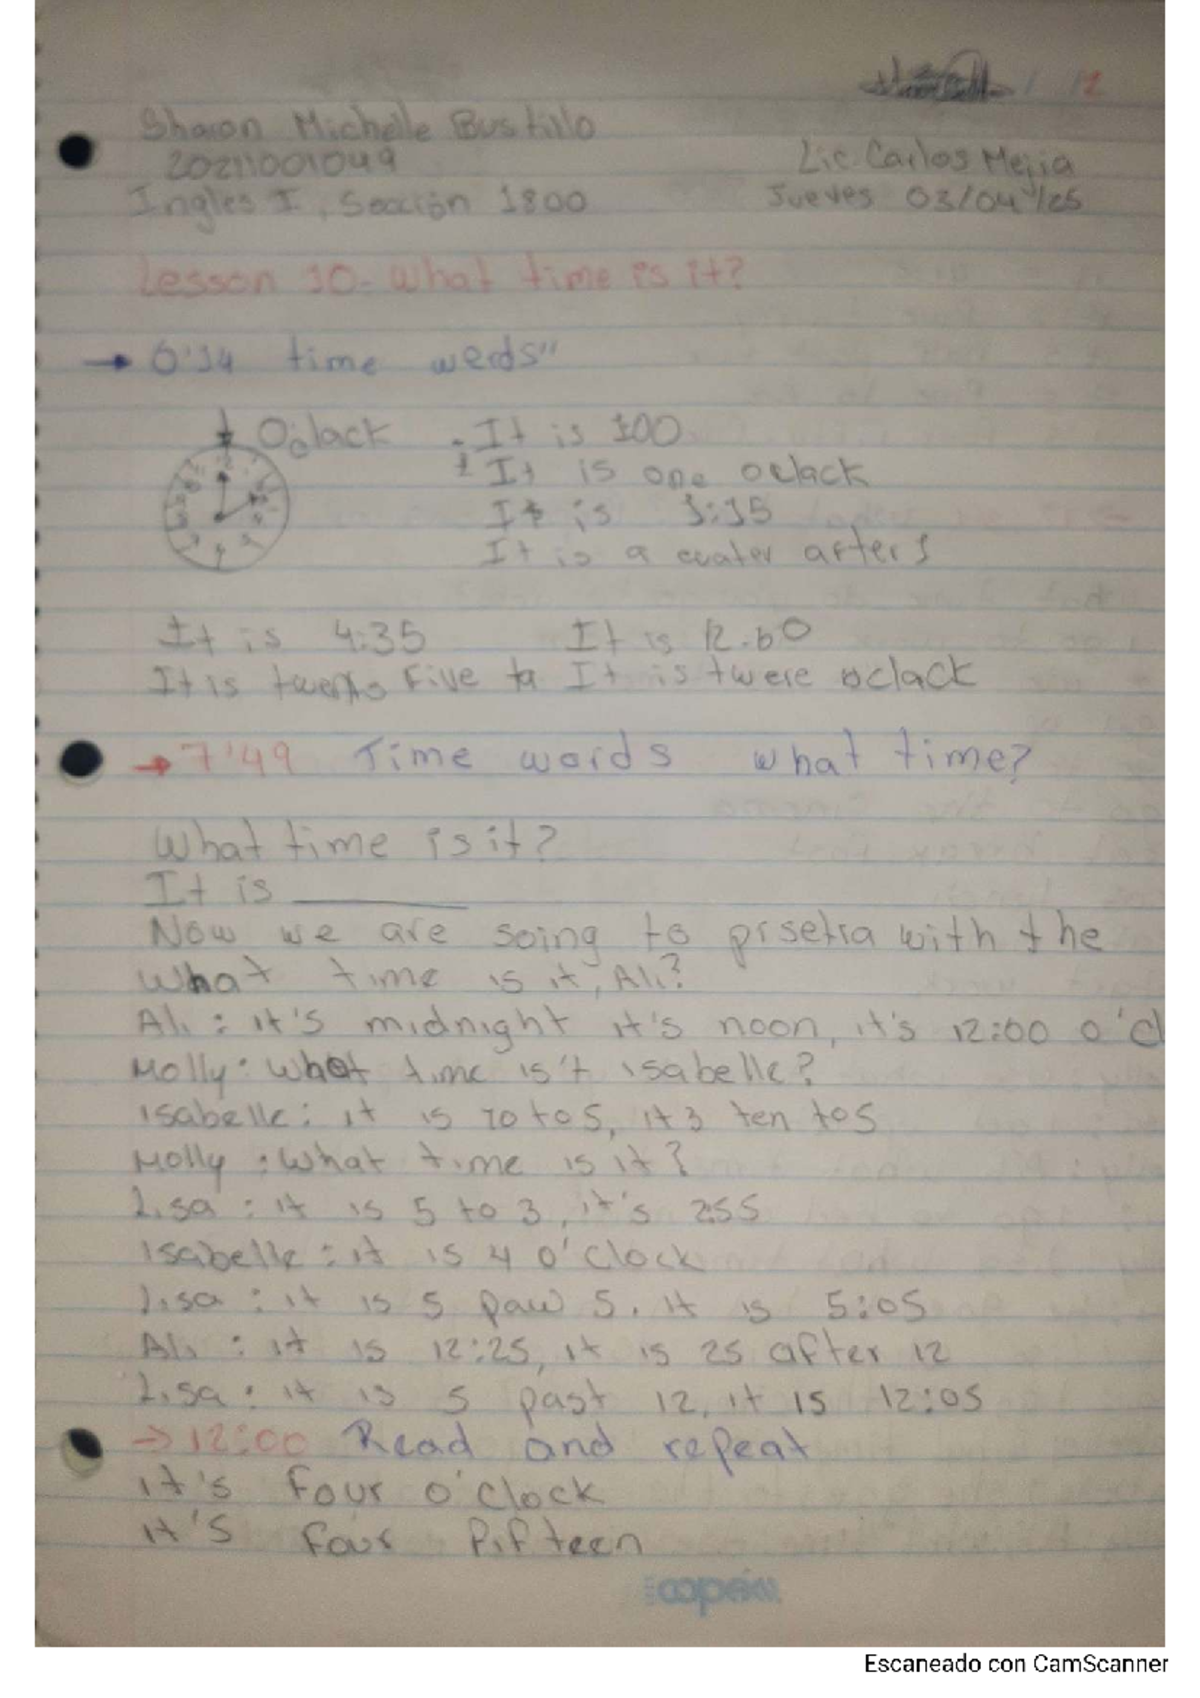 Sharon Michelle Bustillo
20211001049
Lic. Carlos Mejia
Ingles I, Sección 1800
Jueves 03/04/25
Lesson 10- What time is it?
→ 0'14 time werds"
Oclack
. It is 100
It is one oclack
It is 1:15
It is a cuater after 1
It is 4:35
It is 12.60
It is twento Five ta
It is twere oclack
→ 7'49 Time words what time?
What time is it?
It is
Now we are soing to prsetra with the
What time is it, Ali?
Ali : it's midnight it's noon, it's 12:00 o'cl
Molly: What time is't isabelle?
isabelle: it is 10 to 5, it3 ten to5
Molly : What time is it?
Lisa : it is 5 to 3, it's 2:55
isabelle : it is 4 o'clock
Lisa : it is 5 paw 5. it is 5:05
Ali : it is 12:25, it is 25 after 12
Lisa : it is 5 past 12, it is 12:05
→ 12:00 Read and repeat
it's four o'clock
it's four fifteen
copán
Escaneado con CamScanner